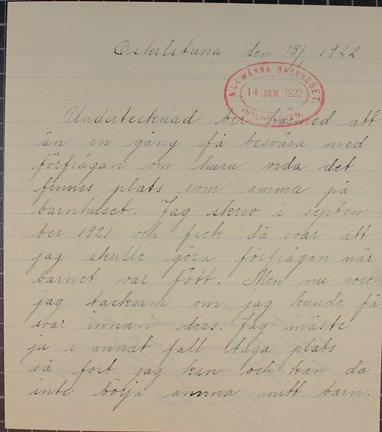 Eskilstuna den 13/1 1922.
ALLMÄNNA BARNHUSET
14 JAN 1922
Undertecknad ber härmed att
än en gång få besvära med
förfrågan om huru vida det
finnes plats som amma på
barnhuset. Jag skrev i septem
ber 1921 och fick då svar att
jag skulle göra förfrågan när
barnet var fött. Men nu vore
jag tacksam om jag kunde få
svar innan dess. Jag måste
ju i annat fall taga plats
så fort jag kan och kan då
inte börja amma mitt barn.